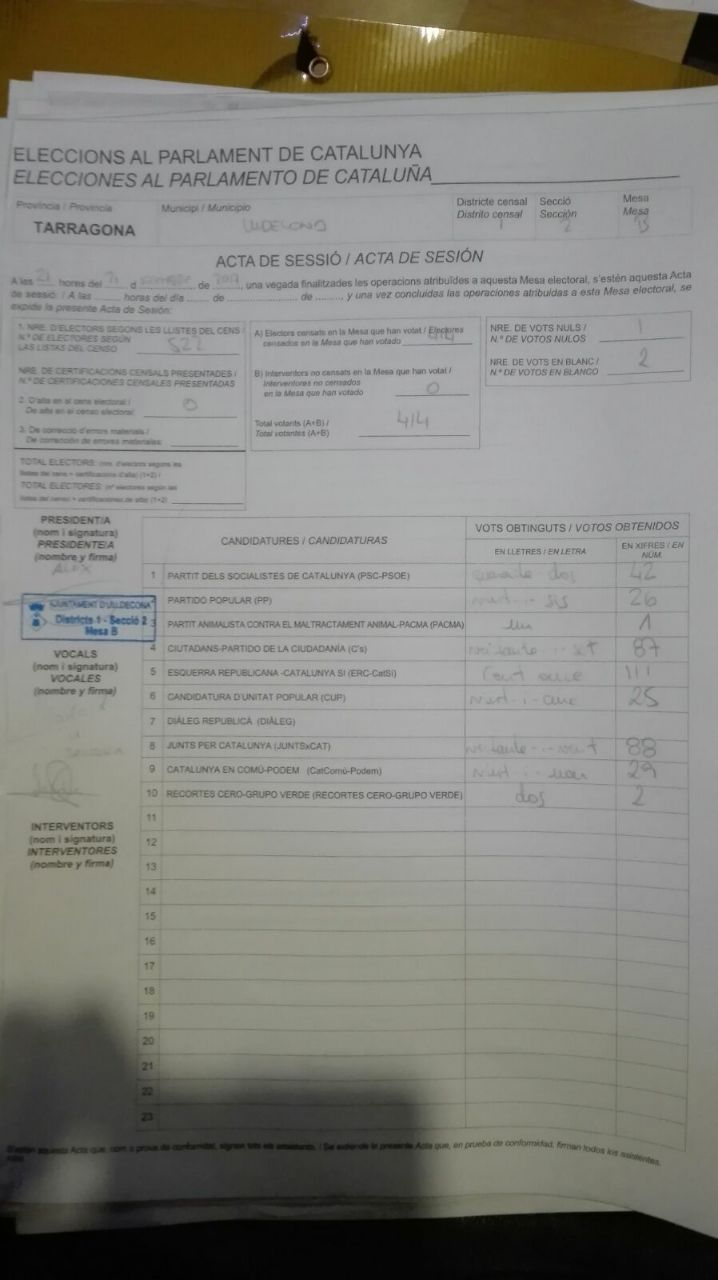 ELECCIONS AL PARLAMENT DE CATALUNYA
ELECCIONES AL PARLAMENTO DE CATALUÑA
Província / Provincia Municipi / Municipio Districte censal Secció Mesa
Distrito censal Sección Mesa
TARRAGONA ULLDECONA 1 2 B
ACTA DE SESSIÓ / ACTA DE SESIÓN
A les 21 hores del 21 d de 2017, una vegada finalitzades les operacions atribuïdes a aquesta Mesa electoral, s'estén aquesta Acta
de sessió: / A las horas del día de de y una vez concluidas las operaciones atribuidas a esta Mesa electoral, se
expide la presente Acta de Sesión:
1. NRE. D'ELECTORS SEGONS LES LLISTES DEL CENS /
N.º DE ELECTORES SEGÚN
LAS LISTAS DEL CENSO 522
NRE. DE CERTIFICACIONS CENSALS PRESENTADES /
N.º DE CERTIFICACIONES CENSALES PRESENTADAS
2. D'alta en el cens electoral /
De alta en el censo electoral: 0
3. De correcció d'errors materials /
De corrección de errores materiales:
TOTAL ELECTORS: (nre. d'electors segons les
llistes del cens + certificacions d'alta) (1+2) /
TOTAL ELECTORES: (nº electores según las
listas del censo + certificaciones de alta) (1+2)
A) Electors censats en la Mesa que han votat / Electores
censados en la Mesa que han votado 414
B) Interventors no censats en la Mesa que han votat /
Interventores no censados
en la Mesa que han votado 0
Total votants (A+B) /
Total votantes (A+B) 414
NRE. DE VOTS NULS /
N.º DE VOTOS NULOS 1
NRE. DE VOTS EN BLANC /
N.º DE VOTOS EN BLANCO 2
PRESIDENT/A
(nom i signatura)
PRESIDENTE/A
(nombre y firma)
AJUNTAMENT D'ULLDECONA
Districte 1 - Secció 2
Mesa B
VOCALS
(nom i signatura)
VOCALES
(nombre y firma)
INTERVENTORS
(nom i signatura)
INTERVENTORES
(nombre y firma)
CANDIDATURES / CANDIDATURAS VOTS OBTINGUTS / VOTOS OBTENIDOS
EN LLETRES / EN LETRA EN XIFRES / EN NÚM.
1 PARTIT DELS SOCIALISTES DE CATALUNYA (PSC-PSOE) dos 42
2 PARTIDO POPULAR (PP) vint-i-sis 26
3 PARTIT ANIMALISTA CONTRA EL MALTRACTAMENT ANIMAL-PACMA (PACMA) un 1
4 CIUTADANS-PARTIDO DE LA CIUDADANÍA (C's) 87
5 ESQUERRA REPUBLICANA -CATALUNYA SI (ERC-CatSí) Cent onze 111
6 CANDIDATURA D'UNITAT POPULAR (CUP) vint-i-cinc 25
7 DIÀLEG REPUBLICÀ (DIÀLEG)
8 JUNTS PER CATALUNYA (JUNTSxCAT) 88
9 CATALUNYA EN COMÚ-PODEM (CatComú-Podem) vint-i-nou 29
10 RECORTES CERO-GRUPO VERDE (RECORTES CERO-GRUPO VERDE) dos 2
11
12
13
14
15
16
17
18
19
20
21
22
23
S'estén aquesta Acta que, com a prova de conformitat, signen tots els assistents. / Se extiende la presente Acta que, en prueba de conformidad, firman todos los asistentes.